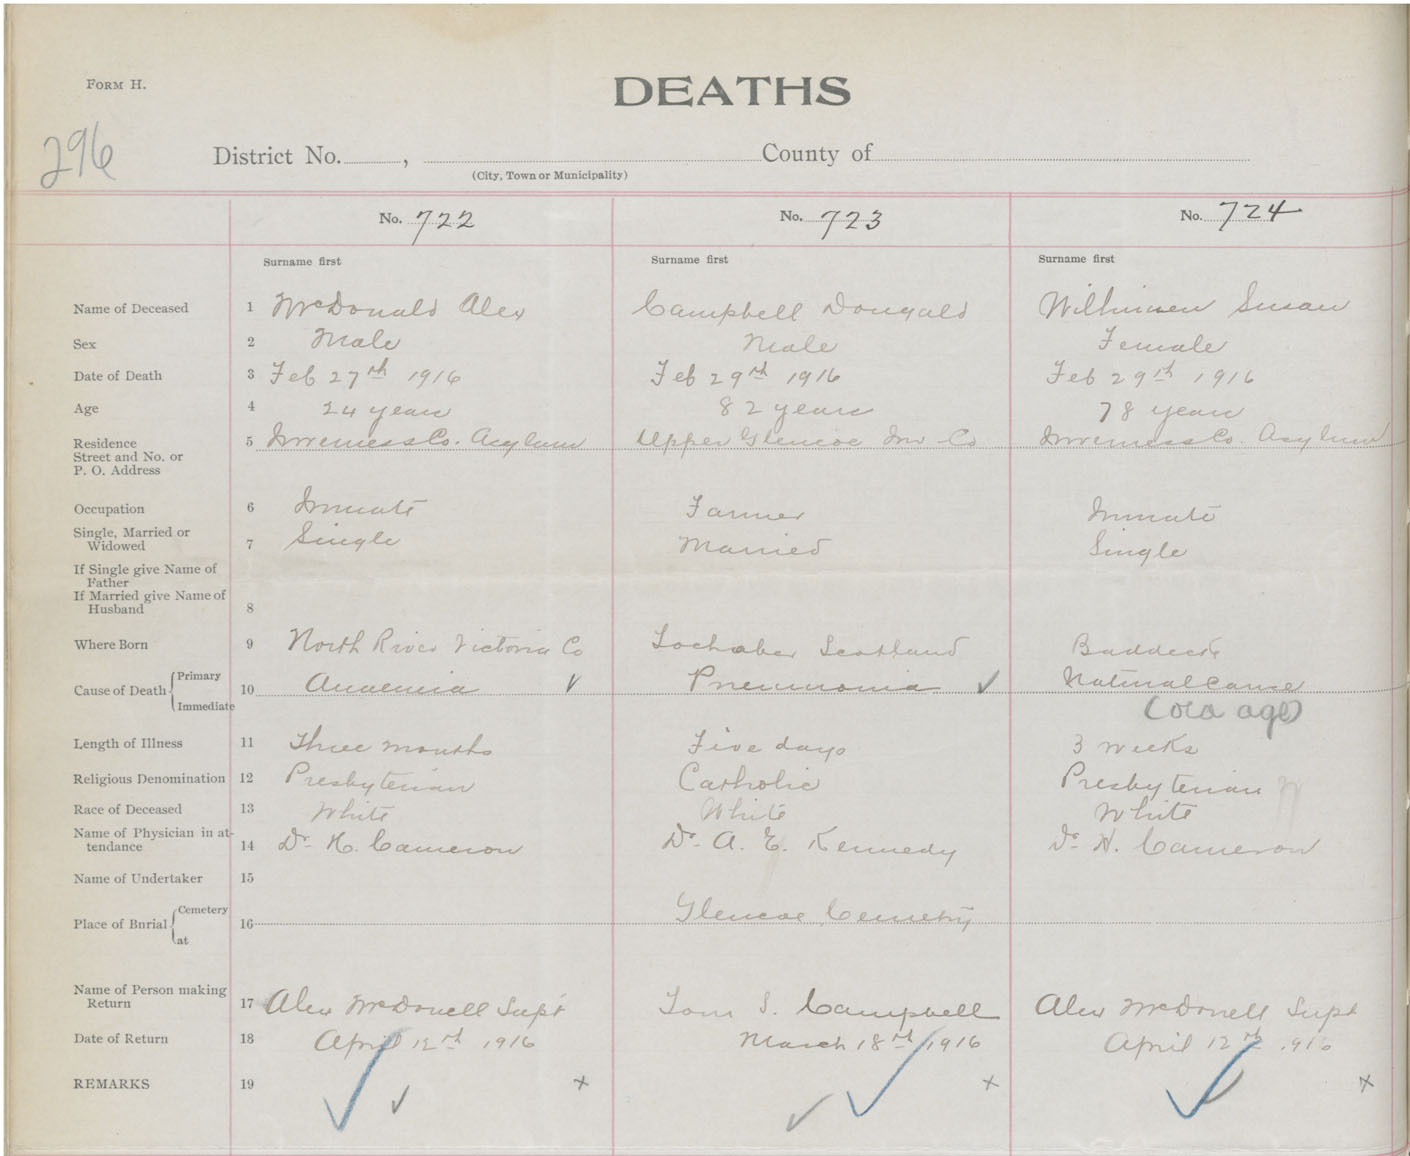 FORM H.
DEATHS
296
District No. , County of
(City, Town or Municipality)
No. 722 No. 723 No. 724
Surname first Surname first Surname first
Name of Deceased 1 McDonald Alex Campbell Dougald Susan
Sex 2 Male Male Female
Date of Death 3 Feb 27th 1916 Feb 29th 1916 Feb 29th 1916
Age 4 24 years 82 years 78 years
Residence 5 Inverness Co. Asylum Upper Glencoe Inv Co Inverness Co. Asylum
Street and No. or
P. O. Address
Occupation 6 Inmate Farmer Inmate
Single, Married or
Widowed 7 Single Married Single
If Single give Name of
Father
If Married give Name of
Husband 8
Where Born 9 North River Victoria Co Lochaber Scotland Baddeck
Cause of Death Primary 10 Anaemia ✓ Pneumonia ✓ Natural Cause
Immediate (old age)
Length of Illness 11 Three months Five days 3 weeks
Religious Denomination 12 Presbyterian Catholic Presbyterian
Race of Deceased 13 White White White
Name of Physician in at-
tendance 14 Dr. H. Cameron Dr. A. E. Kennedy Dr. H. Cameron
Name of Undertaker 15
Place of Burial Cemetery 16 Glencoe Cemetry
at
Name of Person making
Return 17 Alex McDonell Supt S. Campbell Alex McDonell Supt
Date of Return 18 April 12th 1916 March 18th 1916 April 12th 1916
REMARKS 19 ✓ ✓ x ✓ ✓ x ✓ x